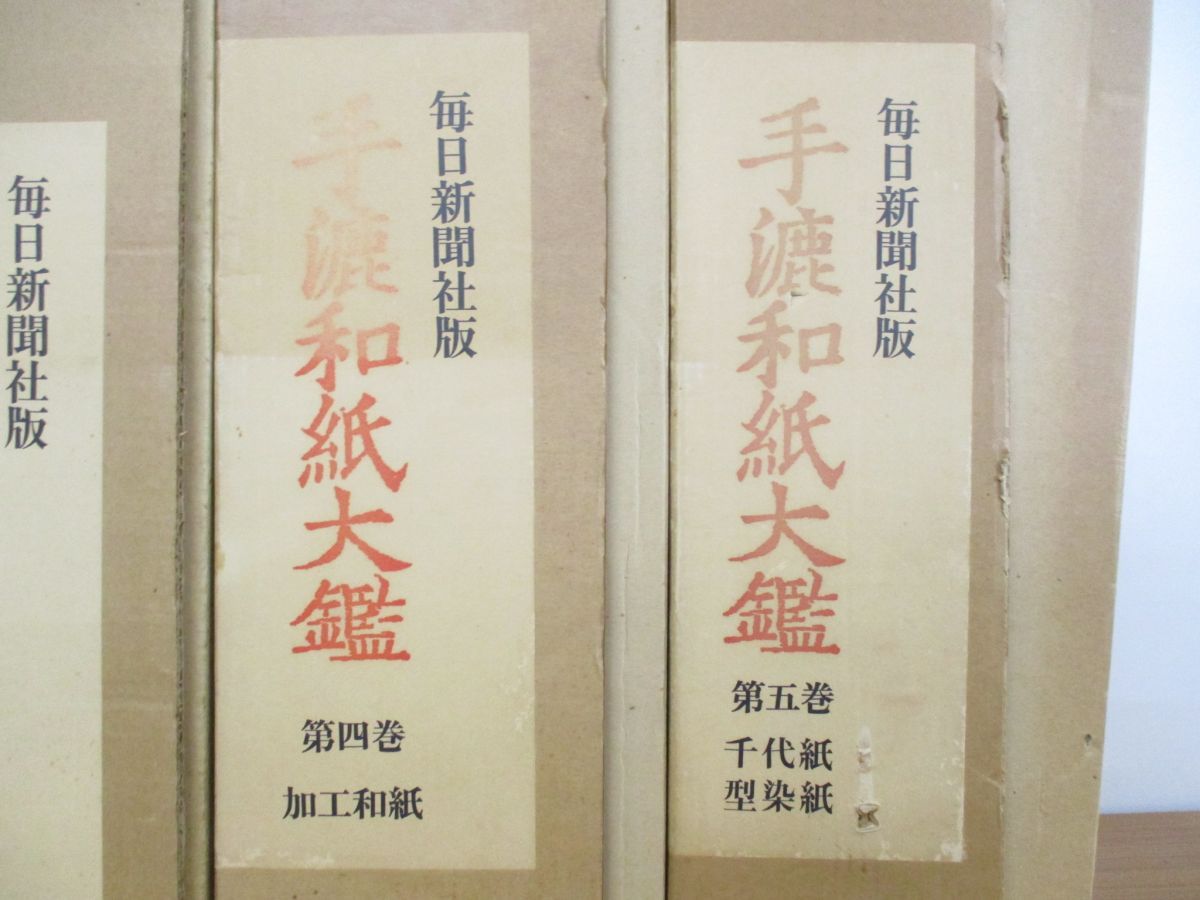 毎日新聞社版
手漉和紙大鑑
第五巻
千代紙
型染紙
毎日新聞社版
手漉和紙大鑑
第四巻
加工和紙
毎日新聞社版